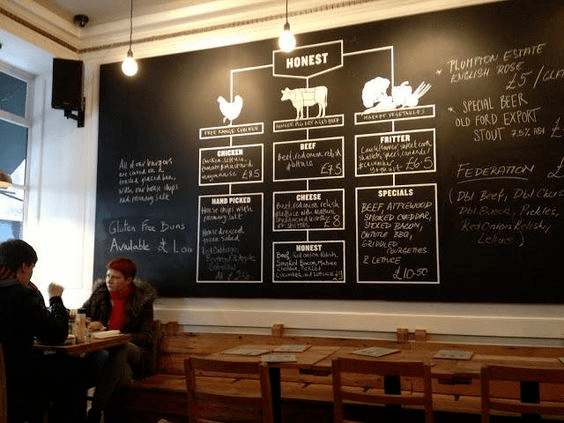 HONEST
FREE RANGE CHICKEN
MARKET VEGETABLES
CHICKEN
Chicken, lettuce,
mayonnaise £8.5
BEEF
Beef, red onion relish
& lettuce £7.5
FRITTER
Cauliflower, sweetcorn,
shallots, spices, coriander
£6.5
HAND PICKED
House chips with
rosemary salt
House dressed
green salad
Red Cabbage,
Coleslaw
CHEESE
Beef, red onion relish,
lettuce with mature
£8
HONEST
Beef, Red Onion Relish,
Smoked Bacon, Mature
Cheddar, Pickled
Cucumber and Lettuce £9
SPECIALS
BEEF, APPLEWOOD
SMOKED CHEDDAR,
SMOKED BACON,
CHIPOTLE BBQ,
GRIDDLED
COURGETTES
& LETTUCE
£10.50
All of our burgers
are served on a
toasted glazed bun,
with our house chips
and rosemary salt
Gluten Free Buns
Available £1.00
* PLUMPTON ESTATE
ENGLISH ROSE
£5/
* SPECIAL BEER
OLD FORD EXPORT
STOUT 7.5% ABV £
FEDERATION £
(Dbl Beef, Dbl
Dbl Bacon, Pickles,
Red Onion Relish,
Lettuce)